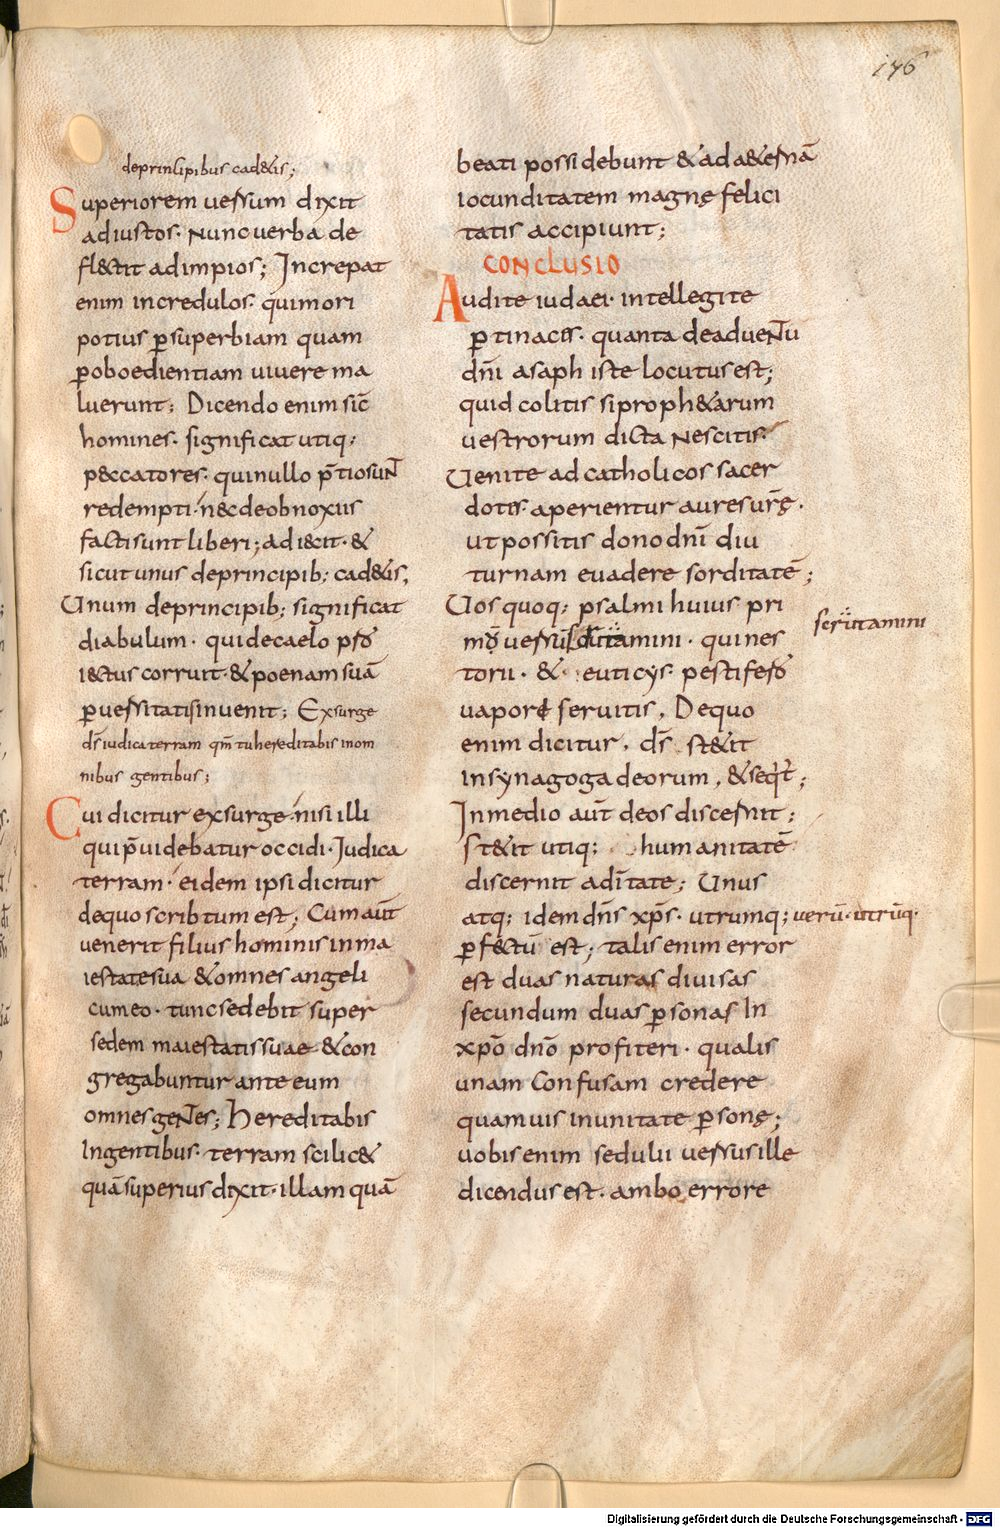 146
deprinsipibus cad&is;
Superiorem uersum dixit
ad iustos. Nunc uerba de
fl&tit ad impios; Increpat
enim incredulos. qui mori
potius ꝑsuperbiam quam
ꝑoboedientiam uiuere ma
luerunt; Dicendo enim sic̄
homines. significat utiq;
peccatores. qui nullo p̄tio sunt
redempti. nec de obnoxiis
facti sunt liberi; adiecit. &
sicut unus deprincipib; cad&is,
Unum deprincipib; significat
diabulum. qui decaelo
iectus corruit. & poenam suā
ꝑuersitatis inuenit; Exsurge
ds̄ iudica terram qm̄ tu hereditabis inom
nibus gentibus;
Cui dicitur exsurge. nisi illi
qui p̄uidebatur occidi. Iudica
terram. eidem ipsi dicitur
dequo scribtum est; Cum aūt
uenerit filius hominis in ma
iestate sua & omnes angeli
cum eo. tunc sedebit super
sedem maiestatis suae. & con
gregabuntur ante eum
omnes gentes; Hereditabis
In gentibus. terram scilic&
quā superius dixit. illam quā
beati possidebunt & ad a&ernā
iocunditatem magnę felici
tatis accipiunt;
CONCLUSIO
Audite iudaei. intellegite
ꝑtinaces. quanta de aduentu
dn̄i asaph iste locutus est;
quid colitis si proph&arum
uestrorum dicta nescitis.
Uenite ad catholicos sacer
dotes. aperientur aures ur̄ę.
ut possitis dono dn̄i diu
turnam euadere sorditatē;
Uos quoq; psalmi huius pri
mo uersu scrutamini. qui nes
scrutamini
torii. & euticys. pestifero
uapore seruitis, De quo
enim dicitur, ds̄ st&it
in synagoga deorum, & seqr̄t;
In medio aūt deos discernit;
st&it utiq; humanitatē
discernit adītate; Unus
atq; idem dn̄s xp̄s. utrumq; verū. utrūq.
ꝑfectū est; talis enim error
est duas naturas diuisas
secundum duas ꝑsonas In
xp̄o dn̄o profiteri. qualis
unam confusam credere
quamuis inunitate ꝑsonę;
uobis enim sedulii uersus ille
dicendus est. ambo errore
Digitalisierung gefördert durch die Deutsche Forschungsgemeinschaft - DFG